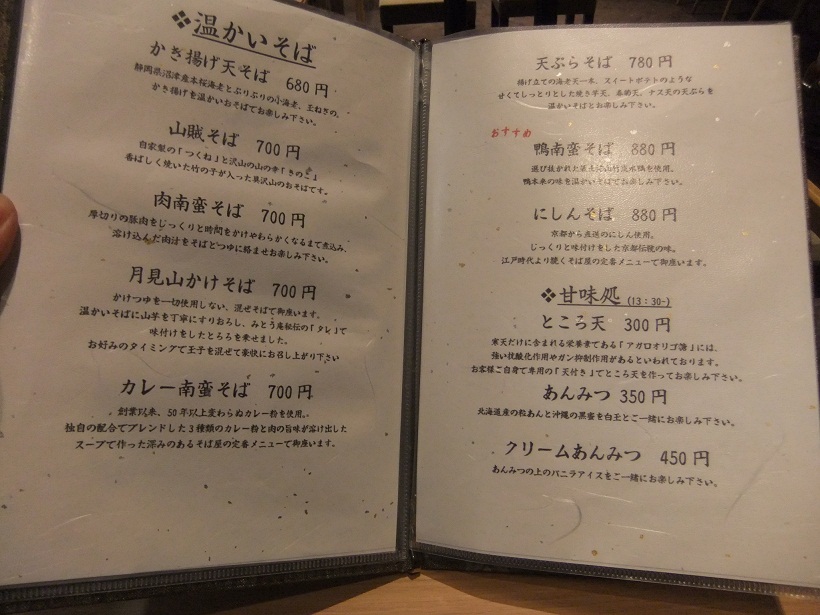 ❖温かいそば
かき揚げ天そば 680円
静岡県沼津産本桜海老とぷりぷりの小海老、玉ねぎの、
かき揚げを温かいおそばでお楽しみ下さい。
山賊そば 700円
自家製の「つくね」と沢山の山の幸「きのこ」
香ばしく焼いた竹の子が入った具沢山のおそばです。
肉南蛮そば 700円
厚切りの豚肉をじっくりと時間をかけやわらかくなるまで煮込み、
溶け込んだ肉汁をそばとつゆに絡ませお楽しみ下さい。
月見山かけそば 700円
かけつゆを一切使用しない、混ぜそばで御座います。
温かいそばに山芋を丁寧にすりおろし、みとう庵秘伝の「タレ」で
味付けをしたとろろを乗せました。
お好みのタイミングで玉子を混ぜて豪快にお召し上がり下さい
カレー南蛮そば 700円
創業以来、50年以上変わらぬカレー粉を使用。
独自の配合でブレンドした3種類のカレー粉と肉の旨味が溶け出した
スープで作った深みのあるそば屋の定番メニューで御座います。
天ぷらそば 780円
揚げ立ての海老天一本、スイートポテトのような
甘くてしっとりとした焼き芋天、春菊天、ナス天の天ぷらを
温かいそばとお楽しみ下さい。
おすすめ
鴨南蛮そば 880円
選び抜かれた を使用。
鴨本来の味を温かいそばでお楽しみ下さい。
にしんそば 880円
京都から直送のにしん使用。
じっくりと味付けをした京都伝統の味。
江戸時代より続くそば屋の定番メニューで御座います。
❖甘味処 (13:30~)
ところ天 300円
寒天だけに含まれる栄養素である「アガロオリゴ糖」には、
強い抗酸化作用やガン抑制作用があるといわれております。
お客様ご自身で専用の「天付き」でところ天を作ってお楽しみ下さい。
あんみつ 350円
北海道産の粒あんと沖縄の黒蜜を白玉とご一緒にお楽しみ下さい。
クリームあんみつ 450円
あんみつの上のバニラアイスをご一緒にお楽しみ下さい。